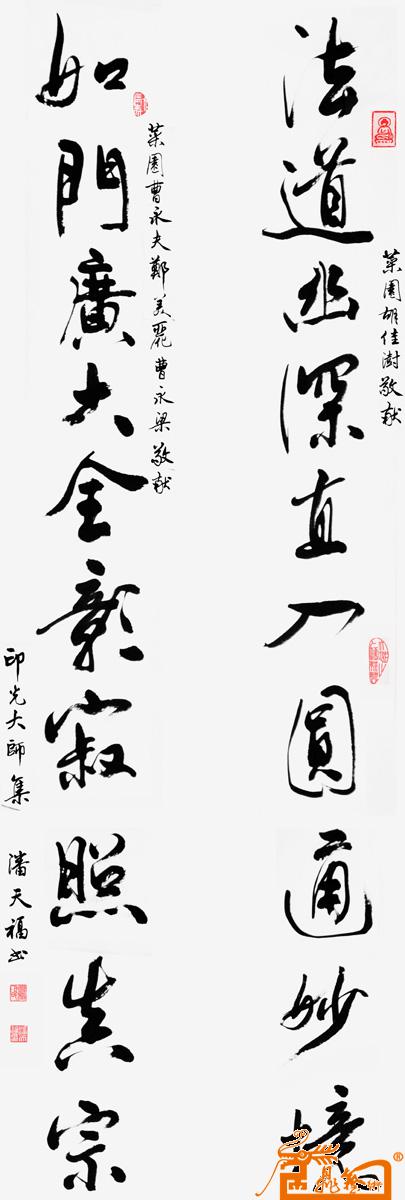 法道幽深直入圓通妙境
菜園胡佳澍敬献
如門廣大全彰寂照真宗
菜園曹永夫鄭美麗曹永梁敬献
印光大師集
潘天福书